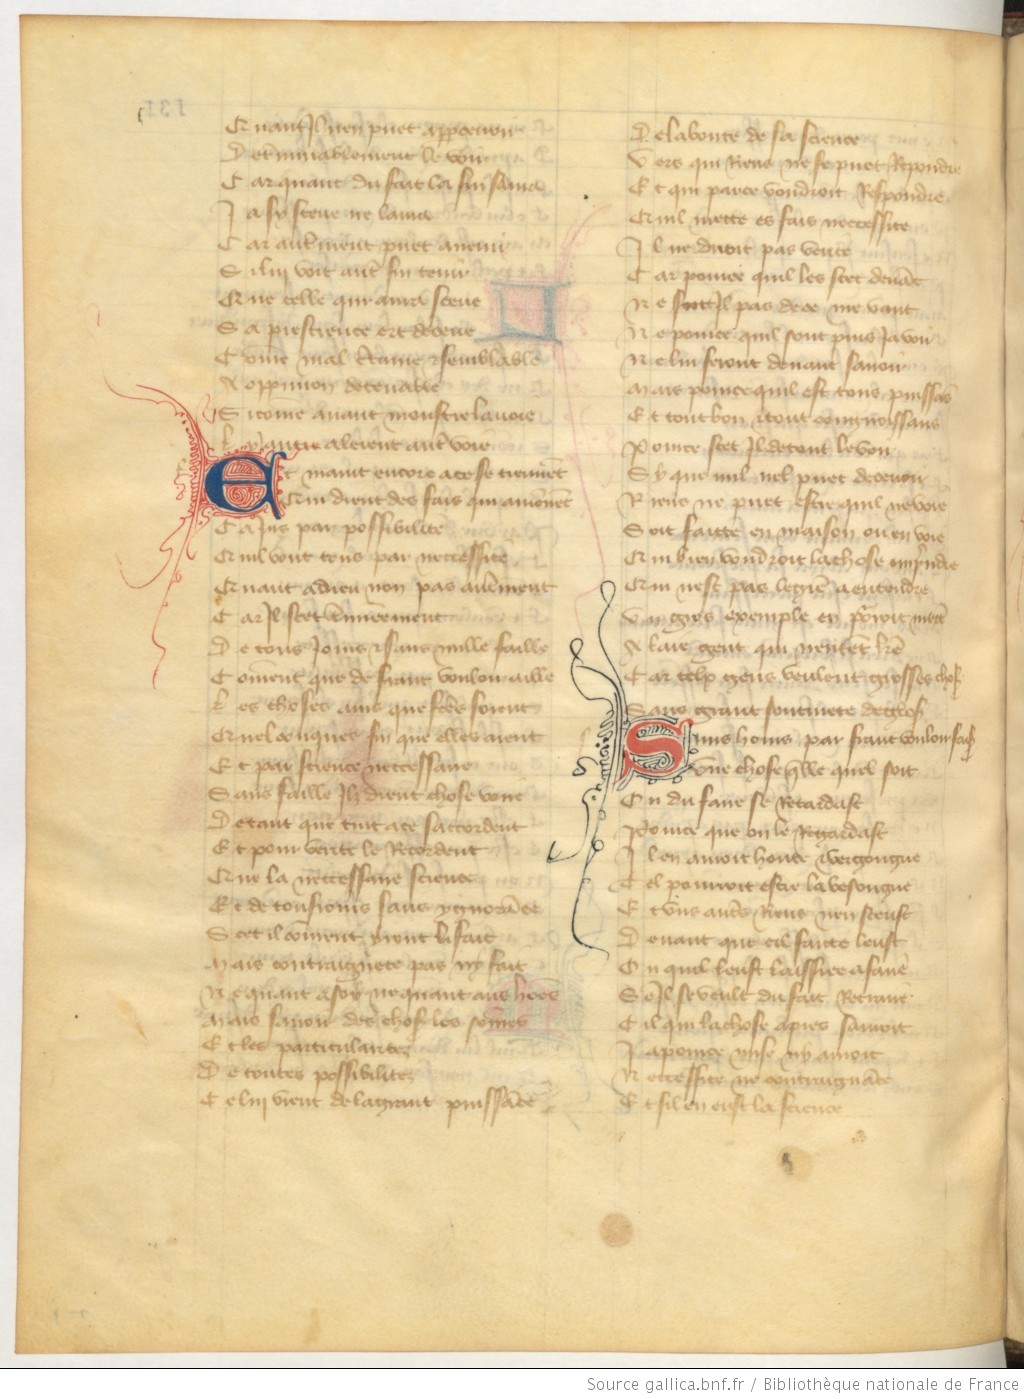 Quant Jl nen puet appcevoir
Determinablement le voir
Car quant du fait la fin sara
Ja sy sceue ne lara
Car autrement puet avenir
Sil lui voit autre fin tenir
Que celle qui aura sceue
Sa prescience ert deceue
Come mal certaine & semblable
A oppinion decevable
Si come avant monstre lavoie
Et maint encore a ce se tiennent
Qui dient des fais qui aviennent
Ca jus par possibilite
Quil vont tous par neccessite
Quant a dieu non pas autrement
Car Jl scet
De tous Jours & sans nulle faille
Coment que de franc vouloir aille
Les choses ains que fetes soient
Quelconques fin que elles aient
Et par science neccessaire
Sans faille Jlz dient chose voire
De tant que tuit a ce saccordent
Et pour verite le Recordent
Que la neccessaire science
Et de tousiours sans ygnorance
Scet il coment yront li fait
Mais contraignece pas ny fait
Ne quant a soy ne quant aus homes
Mais savoir des choses les somes
Et les particularitez
De toutes possibilitez
Ce lui vient de la grant puissance
De la bonte de sa science
Vers qui Riens ne se puet Repondre
Et qui parce vondroit Respondre
Quil mette es fais neccessite
Jl ne diroit pas verite
Car pource quil les scet devant
Ne sont Jl pas de ce me vant
Ne pource quil sont puis Ja voir
Ne lui feront devant savoir
Mais pource quil est tous puissans
Et tout bon & tout congnoissans
Pource scet Jl de tout le voir
Sy que nul nel puet decevoir
Riens ne puet estre quil ne voie
Soit faitte en maison ou en voie
Qui bien vondroit la chose emprendre
Qui nest pas legiere a entendre
Un gros exemple en porroit mettre
A laie gent qui nentent lettre
Car telx gens veulent grosses choses
Sans grant soutivete de gloses
Suns homs par franc vouloir
une chose quelle quel soit
Ou du faire se Retardast
Pource que on le Regardast
Jl en auroit honte & vergongne
Tel pourroit estre la besongne
Et uns autres Riens nen sceust
Devant que cil faitte leust
Ou quil leust laissiee a faire
Se Jl se veult du fait Retraire
Cil qui la chose apres saroit
Ja pource mise ny auroit
Neccessite ne contraignance
Et sil en eust la science